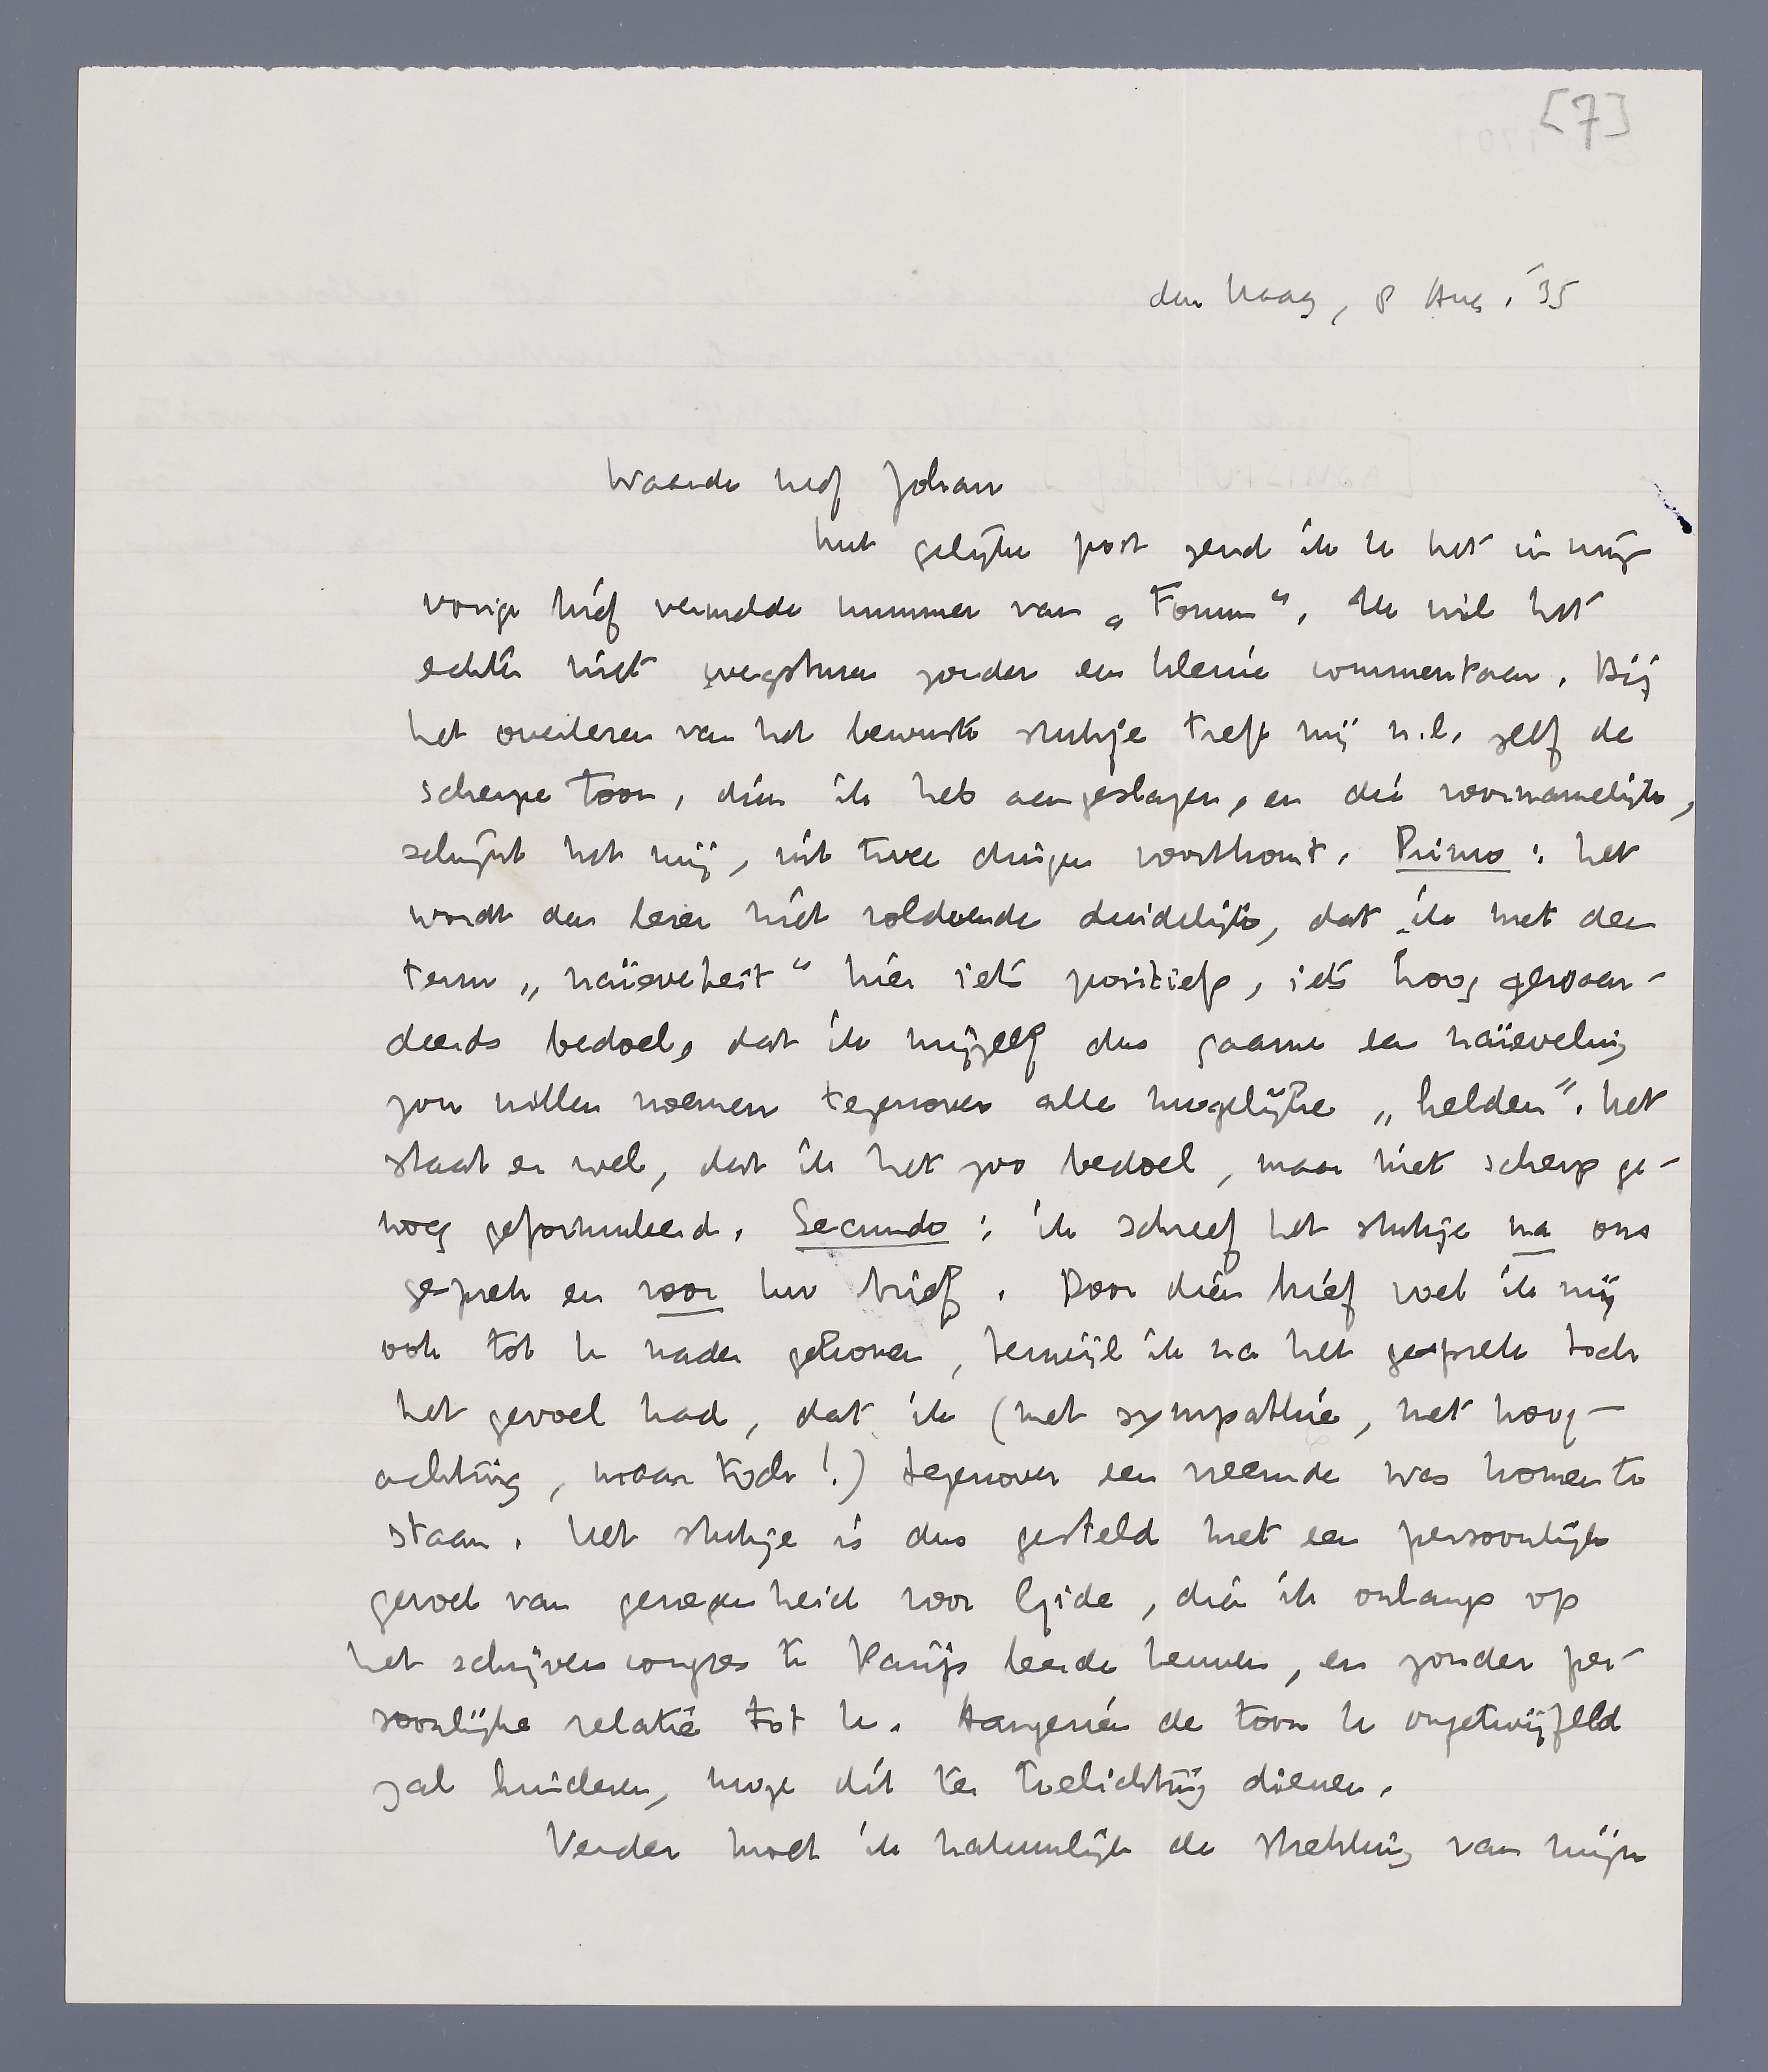 [7]
den Haag, 8 Aug. '35
Waarde heer Johan
Met gelijke post zend ik U het in mijn
vorige brief vermelde nummer van „Forum”. Ik wil het
echter niet wegsturen zonder een kleine commentaar. Bij
het overlezen van het bewuste stukje treft mij n.l. zelf de
scherpe toon, dien ik heb aangeslagen, en die voornamelijk,
schijnt het mij, uit twee dingen voortkomt. Primo: het
wordt den lezer niet voldoende duidelijk, dat ik met den
term „naïeveteit” hier iets positiefs, iets hoog gewaar-
deerds bedoel, dat ik mijzelf dus gaarne een naïeveling
zou willen noemen tegenover alle mogelijke „helden”. Het
staat er wel, dat ik het zoo bedoel, maar niet scherp ge-
noeg geformuleerd. Secundo: ik schreef het stukje na ons
gesprek en voor Uw brief. Door dien brief voel ik mij
ook tot U nader gekomen, terwijl ik na het gesprek toch
het gevoel had, dat ik (met sympathie, met hoog-
achting, maar toch!) tegenover een vreemde was komen te
staan. Het stukje is dus gesteld met een persoonlijk
gevoel van genegenheid voor Gide, dien ik onlangs op
het schrijverscongres te Parijs leerde kennen, en zonder per-
soonlijke relatie tot U. Aangezien de toon U ongetwijfeld
zal hinderen, moge dit ter toelichting dienen.
Verder moet ik natuurlijk de strekking van mijn